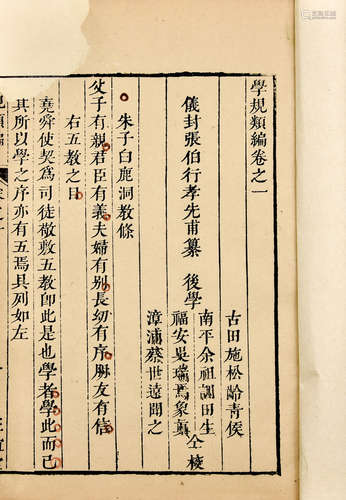 學規類編卷之一
儀封張伯行孝先甫纂 後學
古田施松齡青侯
南平余祖訓田生
福安吳瑞焉象巔
漳浦蔡世遠聞之
仝校
朱子白鹿洞教條
父子有親君臣有義夫婦有別長幼有序朋友有信
右五教之目
堯舜使契為司徒敬敷五教即此是也學者學此而已
其所以學之序亦有五焉其列如左